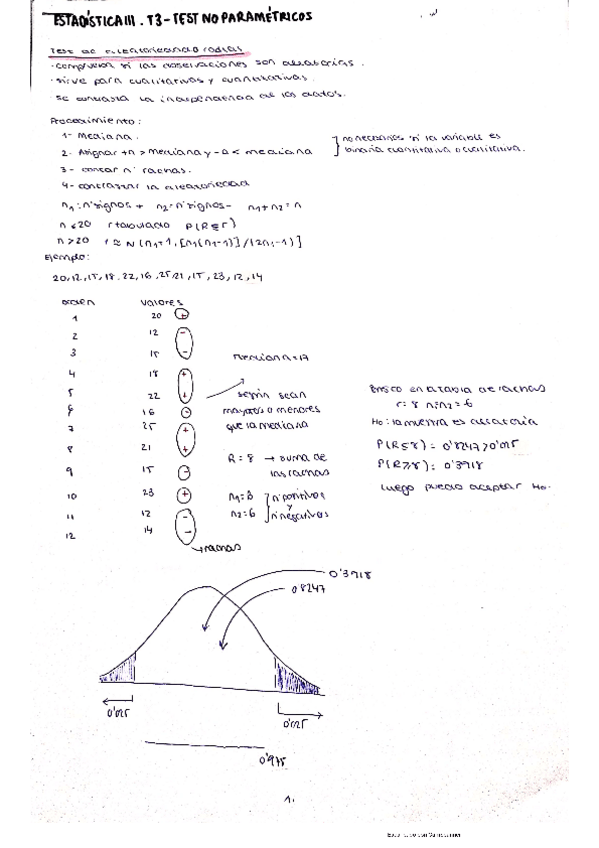 ESTADÍSTICA III. T3-TEST NO PARAMÉTRICOS
Test de aleatoriedad rachas
· comprueban si las observaciones son aleatorias.
· sirve para cualitativas y cuantitativas.
· se contrasta la independencia de los datos.
Procedimiento:
1- Mediana.
2- Asignar + a > mediana y - a < mediana
] no necesarios si la variable es binaria cuantitativa o cualitativa.
3- contar nº rachas.
4- contrastar la aleatoriedad
n1: nº signos + n2: nº signos - n1+n2=n
n ≤ 20 r tabulado P(R≤r)
n > 20 r ≈ N(n1+1, [n1(n1-1)]/(2n1-1)]
Ejemplo:
20,12,15,18,22,16,25,21,15,23,12,14
orden valores
1 20 +
2 12 -
3 15 -
mediana=17
4 18 +
5 22 +
6 16 -
7 25 +
8 21 +
9 15 -
10 23 +
11 12 -
12 14 -
→rachas
según sean
mayores o menores
que la mediana
R = 8 → suma de
las rachas
n1=6 nº positivos
y
n2=6 nº negativos
Busco en la tabla de rachas
r=8 n1=n2=6
H0: la muestra es aleatoria
P(R≤8)= 0'8247>0'025
P(R≥8)= 0'3918
Luego puedo aceptar H0.
0'3918
0'8247
0'025
0'025
0'975
1.
Escaneado con CamScanner